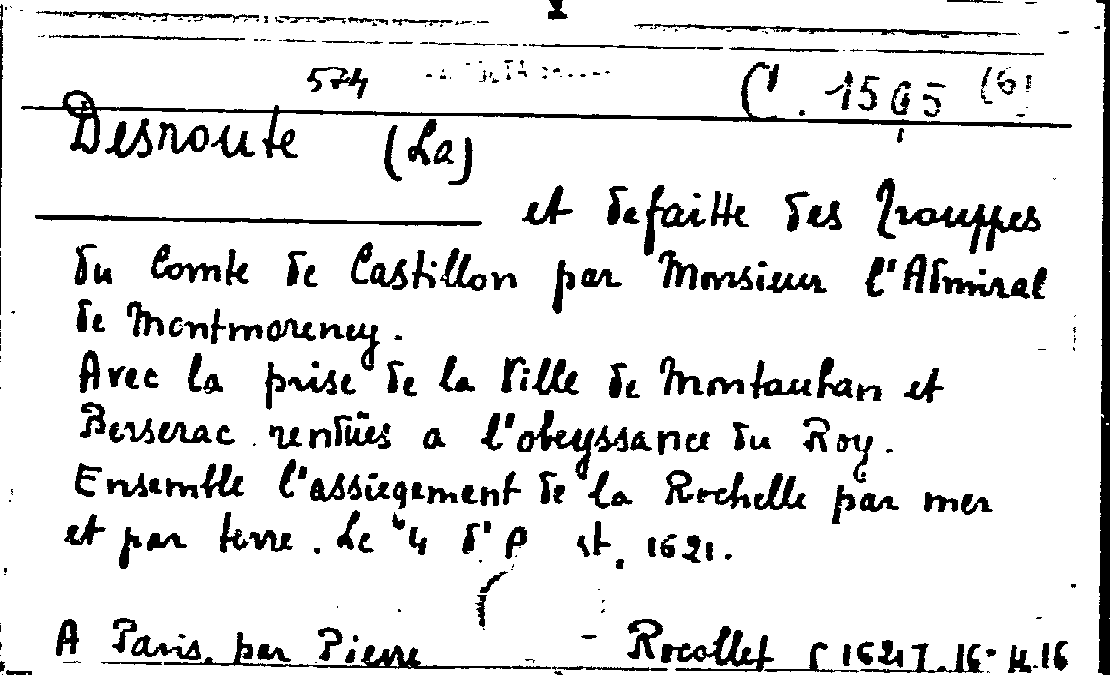 574 C. 1595 (6)
Desroute (La)
et defaitte des Trouppes
du Comte de Castillon par Monsieur l'Admiral
de Montmorency.
Avec la prise de la Ville de Montauban et
Berserac rendües a l'obeyssance du Roy.
Ensemble l'assiegement de la Rochelle par mer
et par terre. Le 4 d' st. 1621.
A Paris, par Pierre Rocollet [1621]. 16- p. 16